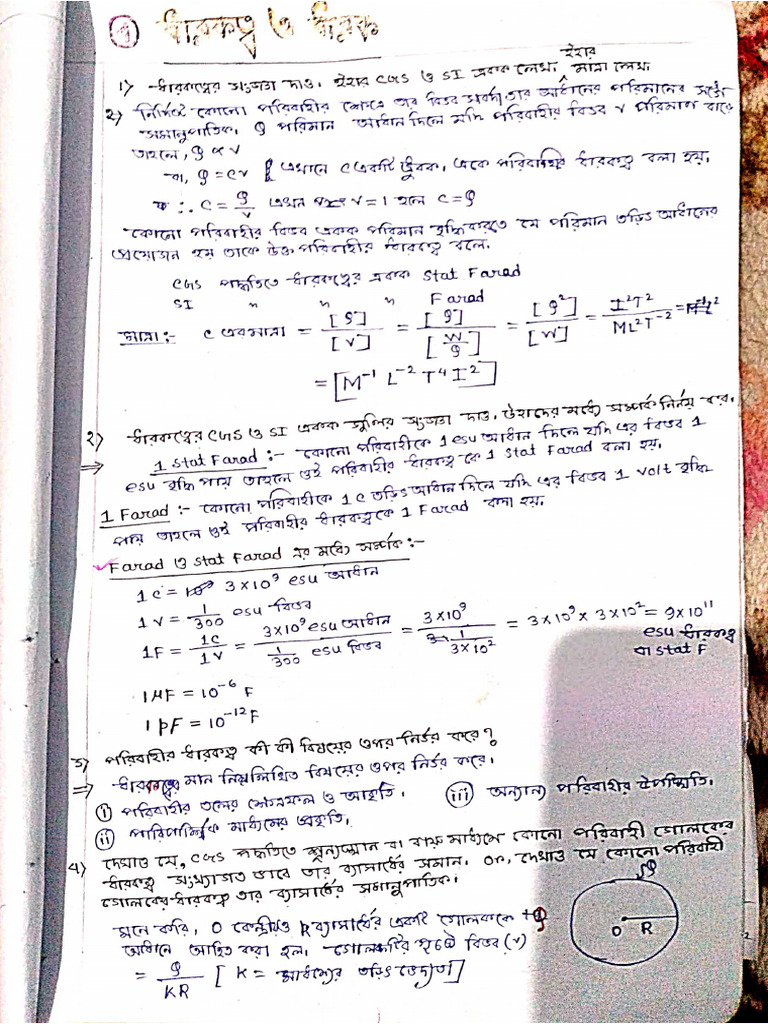 ④ ধারকত্ব ও ধারক
১) ধারকত্বের সংজ্ঞা দাও, ইহার CGS ও SI একক লেখ, ইহার মাত্রা লেখ
২) নির্দিষ্ট কোনো পরিবাহীর ক্ষেত্রে তার বিভব সর্বদা তার আধানের পরিমানের সঙ্গে
সমানুপাতিক, Q পরিমান আধান দিলে যদি পরিবাহীর বিভব V পরিমাণ বাড়ে
তাহলে, Q ∝ V
বা, Q = CV [এখানে C একটি ধ্রুবক, একে পরিবাহীর ধারকত্ব বলা হয়,
∴ C = Q/V এখন V = 1 হলে C = Q
কোনো পরিবাহীর বিভব একক পরিমান বৃদ্ধি করতে যে পরিমান তড়িৎ আধানের
প্রয়োজন হয় তাকে উক্ত পরিবাহীর ধারকত্ব বলে,
CGS পদ্ধতিতে ধারকত্বের একক Stat Farad
SI " " " Farad
মাত্রা :- C এর মাত্রা = [Q]/[V] = [Q]/[W/Q] = [Q²]/[W] = I²T²/ML²T⁻²
= [M⁻¹ L⁻² T⁴ I²]
২) ধারকত্বের CGS ও SI একক গুলির সংজ্ঞা দাও, উহাদের মধ্যে সম্পর্ক নির্নয় কর,
⇒ 1 Stat Farad :- কোনো পরিবাহীকে 1 esu আধান দিলে যদি এর বিভব 1
esu বৃদ্ধি পায় তাহলে ওই পরিবাহীর ধারকত্ব কে 1 Stat Farad বলা হয়,
1 Farad :- কোনো পরিবাহীকে 1 C তড়িৎ আধান দিলে যদি এর বিভব 1 Volt বৃদ্ধি
পায় তাহলে ওই পরিবাহীর ধারকত্বকে 1 Farad বলা হয়,
Farad ও Stat Farad এর মধ্যে সম্পর্ক :-
1 C = 3×10⁹ esu আধান
1 V = 1/300 esu বিভব
1F = 1C/1V = 3×10⁹ esu আধান / 1/300 esu বিভব = 3×10⁹ / 1/3×10² = 3×10⁹ × 3×10² = 9×10¹¹
esu ধারকত্ব
বা Stat F
1 μF = 10⁻⁶ F
1 pF = 10⁻¹² F
৩) পরিবাহীর ধারকত্ব কী কী বিষয়ের ওপর নির্ভর করে?
⇒ ধারকত্বের মান নিম্নলিখিত বিষয়ের ওপর নির্ভর করে,
ⓘ পরিবাহীর তলের ক্ষেত্রফল ও আকৃতি, ⓘⓘⓘ অন্যান্য পরিবাহীর উপস্থিতি,
ⓘⓘ পারিপার্শ্বিক মাধ্যমের প্রকৃতি,
৪) দেখাও যে, CGS পদ্ধতিতে শূন্যস্থান বা বায়ু মাধ্যমে কোনো পরিবাহী গোলকের
ধারকত্ব সংখ্যাগত ভাবে তার ব্যাসার্ধের সমান, or, দেখাও যে কোনো পরিবাহী
গোলকের ধারকত্ব তার ব্যাসার্ধের সমানুপাতিক,
মনে করি, O কেন্দ্রীয় R ব্যাসার্ধের একটি গোলককে +Q
আধানে আহিত করা হল, গোলকটির পৃষ্ঠে বিভব (V)
= Q/KR [K = মাধ্যমের তড়িৎ ভেদ্যতা]
Q
O R